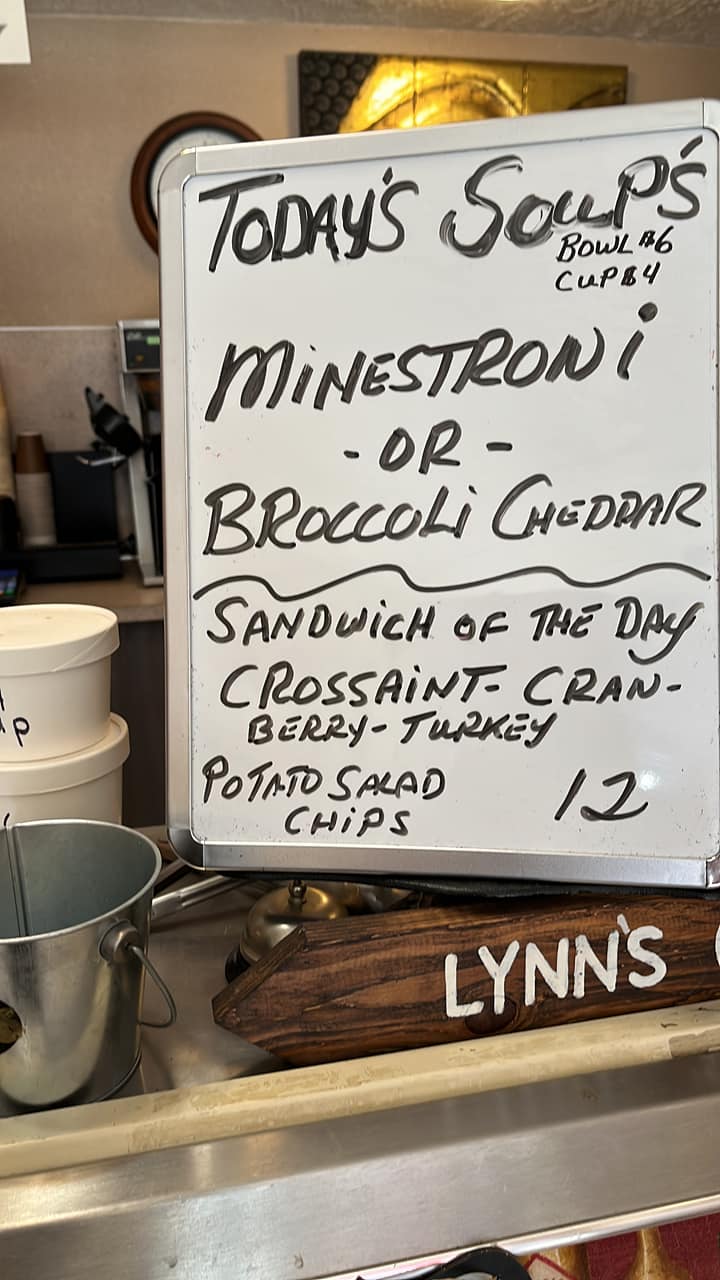 TODAY'S SOUP'S
BOWL $6
CUP $4
MINESTRONi
- OR -
BROCCOLi CHEDDAR
SANDWiCH OF THE DAY
CROSSAiNT- CRAN-
BERRY- TURKEY
POTATO SALAD
CHiPS
12
LYNN'S